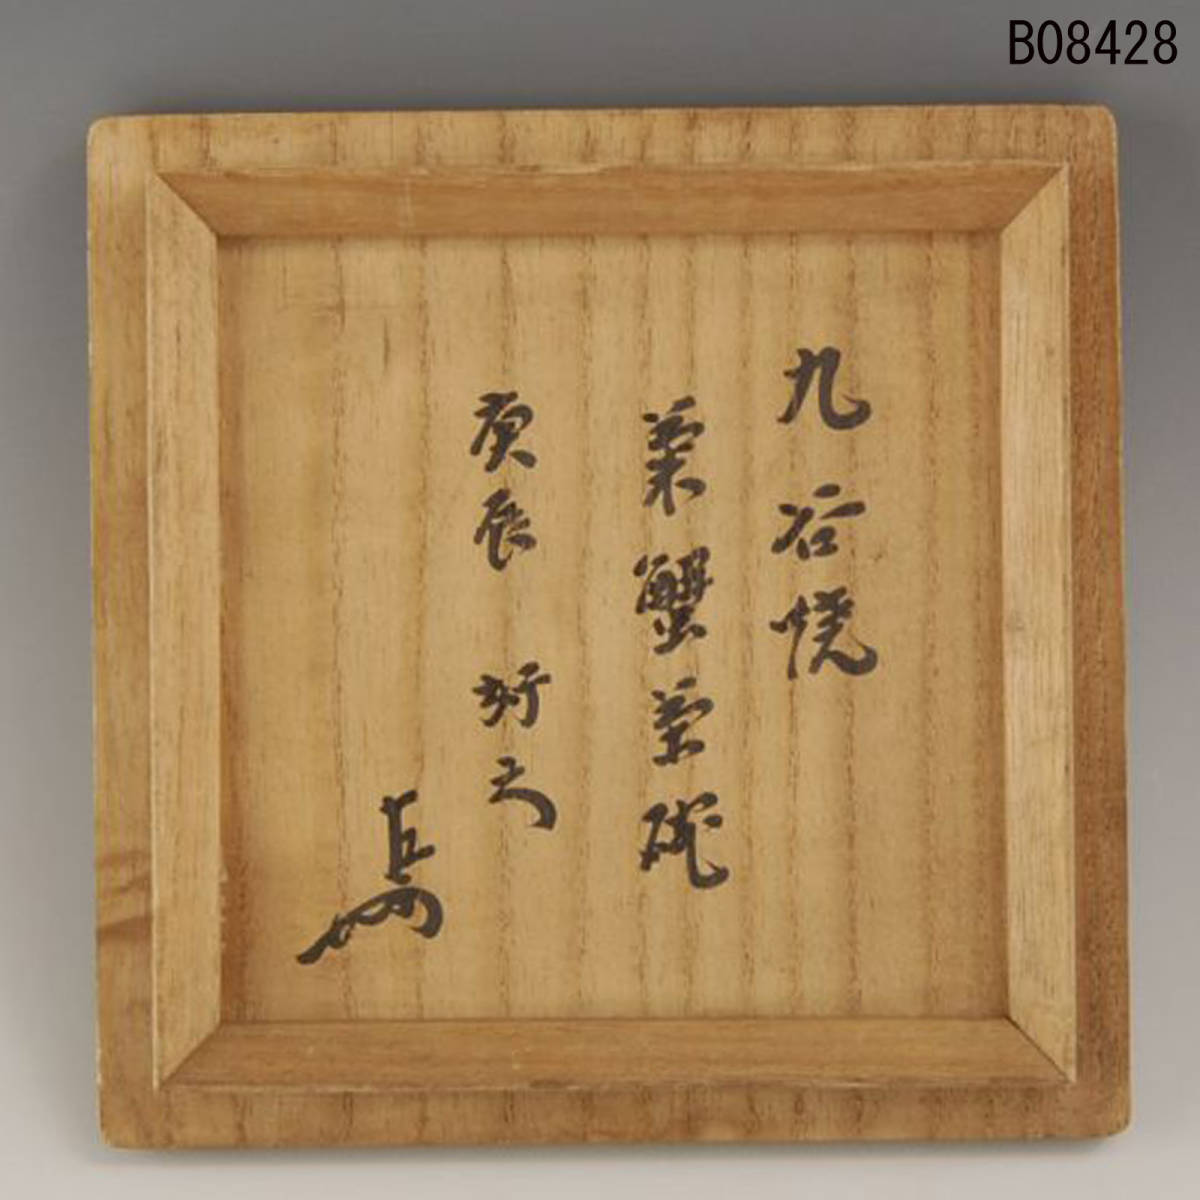 B08428
九谷焼
菓蟹茶碗
庚辰 好之